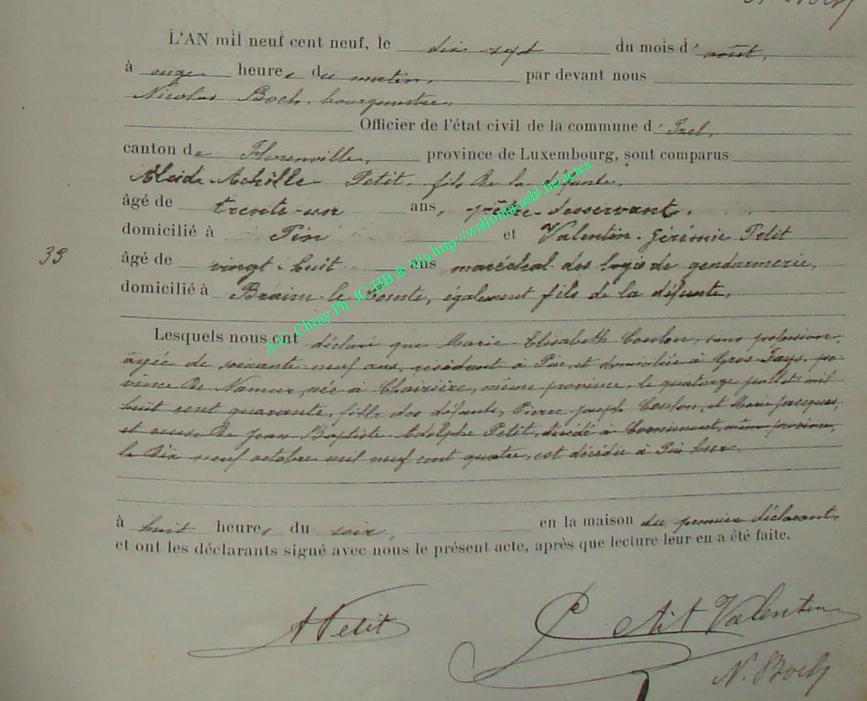 N. Boch
L'AN mil neuf cent neuf, le dix sept du mois d' août,
à onze heures du matin, par devant nous
Nicolas Boch, bourgmestre,
Officier de l'état civil de la commune d' Izel,
canton de Florenville, province de Luxembourg, sont comparus
Alcide Achille Petit, fils de la défunte,
âgé de trente-un ans, prêtre-desservant,
domicilié à Pin et Valentin-Jérémie Petit
33
âgé de vingt-huit ans maréchal des logis de gendarmerie,
domicilié à Braine-le-Comte, également fils de la défunte,
Lesquels nous ont déclaré que Marie-Elisabeth Coulon, sans profession,
âgée de soixante-neuf ans, résidant à Pin, et domiciliée à Gros-Fays, pro-
vince de Namur, née à Chairière, même province, le quatorze juillet mil
huit cent quarante, fille des défunts, Pierre-Joseph Coulon, et Marie Jacques,
et veuve de Jean-Baptiste-Adolphe Petit, décédé à même province,
le dix neuf octobre mil neuf cent quatre, est décédée à Pin hier
à huit heures du soir, en la maison du premier déclarant,
et ont les déclarants signé avec nous le présent acte, après que lecture leur en a été faite.
A Petit
Petit Valentin
N. Boch
A.C. Chiny Ph. JC/HB ® Via http://wallonia-asbl.be/actes